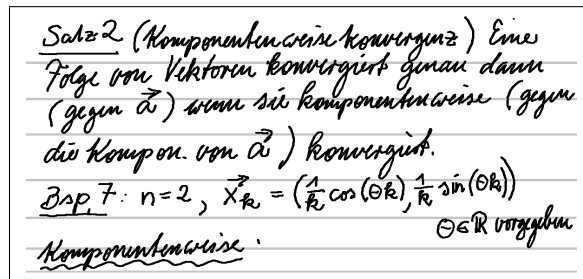 Satz 2 (Komponentenweise Konvergenz) Eine
Folge von Vektoren konvergiert genau dann
(gegen a⃗) wenn sie komponentenweise (gegen
die Kompon. von a⃗) konvergiert.
Bsp. 7: n=2, x⃗_k = (1/k cos(Θk), 1/k sin(Θk))
Θ∈ℝ vorgegeben
Komponentenweise: